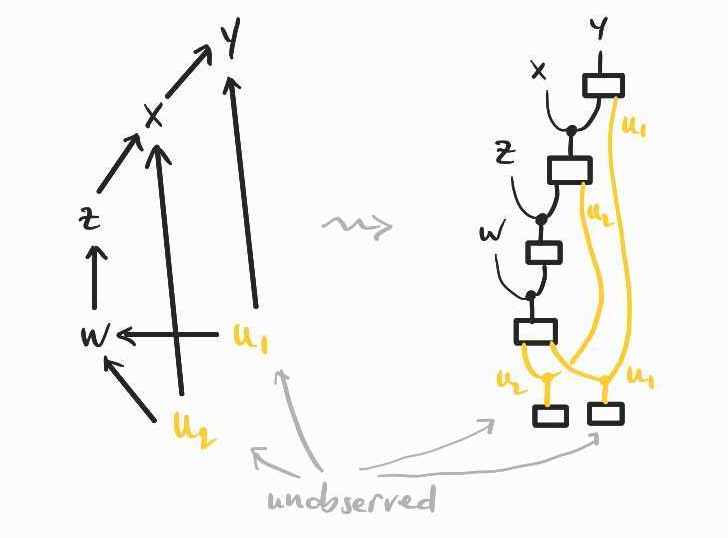 Y
X
Z
W
u₁
u₂
Y
X
u₁
Z
u₂
W
u₂
u₁
unobserved